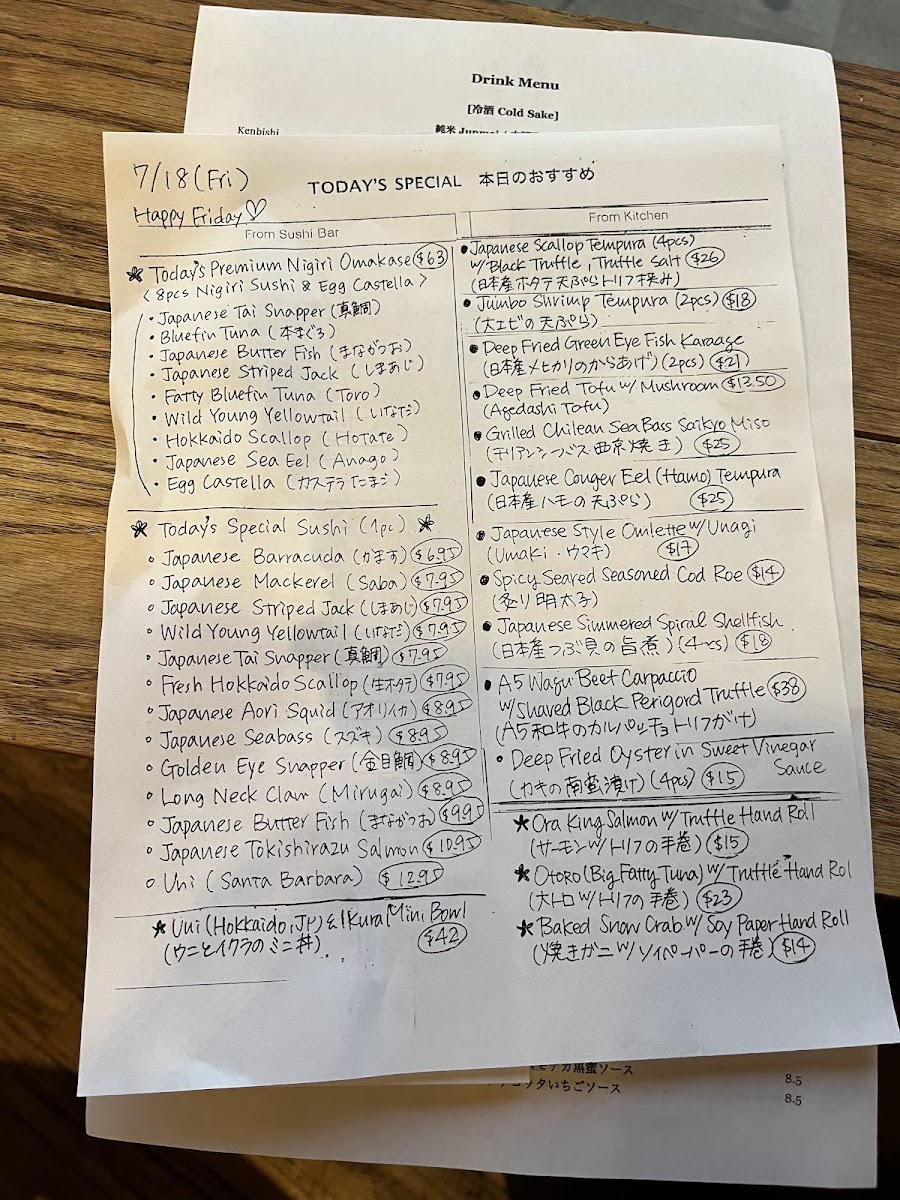 Drink Menu
[冷酒 Cold Sake]
Kenbishi
純米 Junmai
7/18 (Fri)
TODAY'S SPECIAL 本日のおすすめ
Happy Friday♡
From Sushi Bar
Today's Premium Nigiri Omakase $63
< 8pcs Nigiri Sushi & Egg Castella >
・Japanese Tai Snapper (真鯛)
・Bluefin Tuna (本まぐろ)
・Japanese Butter Fish (まながつお)
・Japanese Striped Jack (しまあじ)
・Fatty Bluefin Tuna (Toro)
・Wild Young Yellowtail (いなだ)
・Hokkaido Scallop (Hotate)
・Japanese Sea Eel (Anago)
・Egg Castella (カステラたまご)
Today's Special Sushi (1pc)
Japanese Barracuda (かます) $6.95
Japanese Mackerel (Saba) $7.95
Japanese Striped Jack (しまあじ) $7.95
Wild Young Yellowtail (いなだ) $7.95
Japanese Tai Snapper (真鯛) $7.95
Fresh Hokkaido Scallop (生ホタテ) $7.95
Japanese Aori Squid (アオリイカ) $8.95
Japanese Seabass (スズキ) $8.95
Golden Eye Snapper (金目鯛) $8.95
Long Neck Clam (Mirugai) $8.95
Japanese Butter Fish (まながつお) $9.95
Japanese Tokishirazu Salmon $10.95
Uni (Santa Barbara) $12.95
★ Uni (Hokkaido, JP) & Ikura Mini Bowl
(ウニとイクラのミニ丼) $42
From Kitchen
• Japanese Scallop Tempura (4pcs)
w/Black Truffle, Truffle Salt $26
(日本産ホタテ天ぷらトリフ挟み)
• Jumbo Shrimp Tempura (2pcs) $18
(大エビの天ぷら)
• Deep Fried Green Eye Fish Karaage
(日本産メヒカリのからあげ) (2pcs) $21
• Deep Fried Tofu w/ Mushroom $13.50
(Agedashi Tofu)
• Grilled Chilean Sea Bass Saikyo Miso
(チリアンシーバス西京焼き) $25
• Japanese Conger Eel (Hamo) Tempura
(日本産ハモの天ぷら) $25
• Japanese Style Omlette w/ Unagi
(Umaki・ウマキ) $17
• Spicy Seared Seasoned Cod Roe $14
(炙り明太子)
• Japanese Simmered Spiral Shellfish
(日本産つぶ貝の旨煮) $18
• A5 Wagu Beef Carpaccio
w/Shaved Black Perigord Truffle $38
(A5和牛のカルパッチョトリフがけ)
• Deep Fried Oyster in Sweet Vinegar
Sauce
(カキの南蛮漬け) (4pcs) $15
★ Ora King Salmon w/ Truffle Hand Roll
(サーモンw/トリフの手巻) $15
★ Otoro (Big Fatty Tuna) w/ Truffle Hand Rol
(大トロw/トリフの手巻) $23
★ Baked Snow Crab w/ Soy Paper Hand Roll
(焼きガニw/ソイペーパーの手巻) $14
黒蜜ソース
8.5
いちごソース
8.5